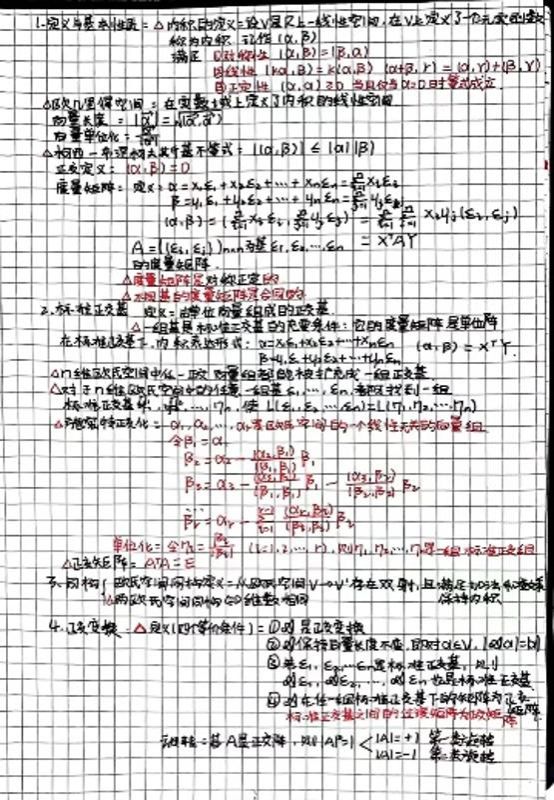 1.定义与基本性质=△内积的定义=设V是R上一线性空间,在V上定义了一个二元实函数
称为内积 记作(α,β)
满足 ①对称性 (α,β)=(β,α)
②线性 (kα,β)=k(α,β) (α+β,γ)=(α,γ)+(β,γ)
③正定性 (α,α)≥0 当且仅当α=0时等式成立
△欧几里得空间=在实数域上定义了内积的线性空间
向量长度=|α|=√(α,α)
向量单位化=
△柯西-布涅柯夫斯基不等式:|(α,β)|≤|α||β|
正交定义:(α,β)=0
度量矩阵:定义:α=x₁ε₁+x₂ε₂+…+xₙεₙ=Σxᵢεᵢ
β=y₁ε₁+y₂ε₂+…+yₙεₙ=Σyⱼεⱼ
(α,β)=(Σxᵢεᵢ,Σyⱼεⱼ)=ΣΣxᵢyⱼ(εᵢ,εⱼ)
A=((εᵢ,εⱼ))ₙₓₙ为基ε₁,ε₂,…,εₙ =X'AY
的度量矩阵.
△度量矩阵是对称正定的
△不同基的度量矩阵是合同的
2.标准正交基 定义=由单位向量组成的正交基.
△一组基是标准正交基的充要条件:它的度量矩阵是单位阵
在标准正交基下,内积表达形式:α=x₁ε₁+x₂ε₂+…+xₙεₙ
β=y₁ε₁+y₂ε₂+…+yₙεₙ (α,β)=X'Y.
△n维欧氏空间中任一正交向量组都能扩充成一组正交基
△对于n维欧氏空间中的任意一组基ε₁,…εₙ,都可找到一组
标准正交基η₁,…,ηₙ,使L(ε₁,ε₂,…εₙ)=L(η₁,η₂,…ηₙ)
△施密特正交化=α₁,α₂,…,αᵣ是欧氏空间的一个线性无关的向量组
令β₁=α₁
β₂=α₂-(α₂,β₁)/(β₁,β₁)β₁
β₃=α₃-(α₃,β₁)/(β₁,β₁)β₁-(α₃,β₂)/(β₂,β₂)β₂
…
βᵣ=αᵣ-Σ(αᵣ,βᵢ)/(βᵢ,βᵢ)βᵢ
单位化=令ηᵢ=βᵢ/|βᵢ| (i=1,2,…r),则η₁,η₂,…ηᵣ是一组标准正交组
△正交矩阵=A'A=E
3.同构{欧氏空间同构定义=从欧氏空间V→V'存在双射,且满足
△两欧氏空间同构⇔维数相同 保持内积
4.正交变换.△定义(四个等价条件)=①𝒜是正交变换
②𝒜保持向量长度不变,即对α∈V,|𝒜α|=|α|
③若ε₁,ε₂,…εₙ是标准正交基,则
𝒜ε₁,𝒜ε₂,…,𝒜εₙ也是标准正交基
④𝒜在任一组标准正交基下的矩阵为正交矩阵
标准正交基之间的过渡矩阵为正交矩阵
=若A是正交阵,则|A|²=1 |A|=+1 第一类旋转
|A|=-1 第二类旋转